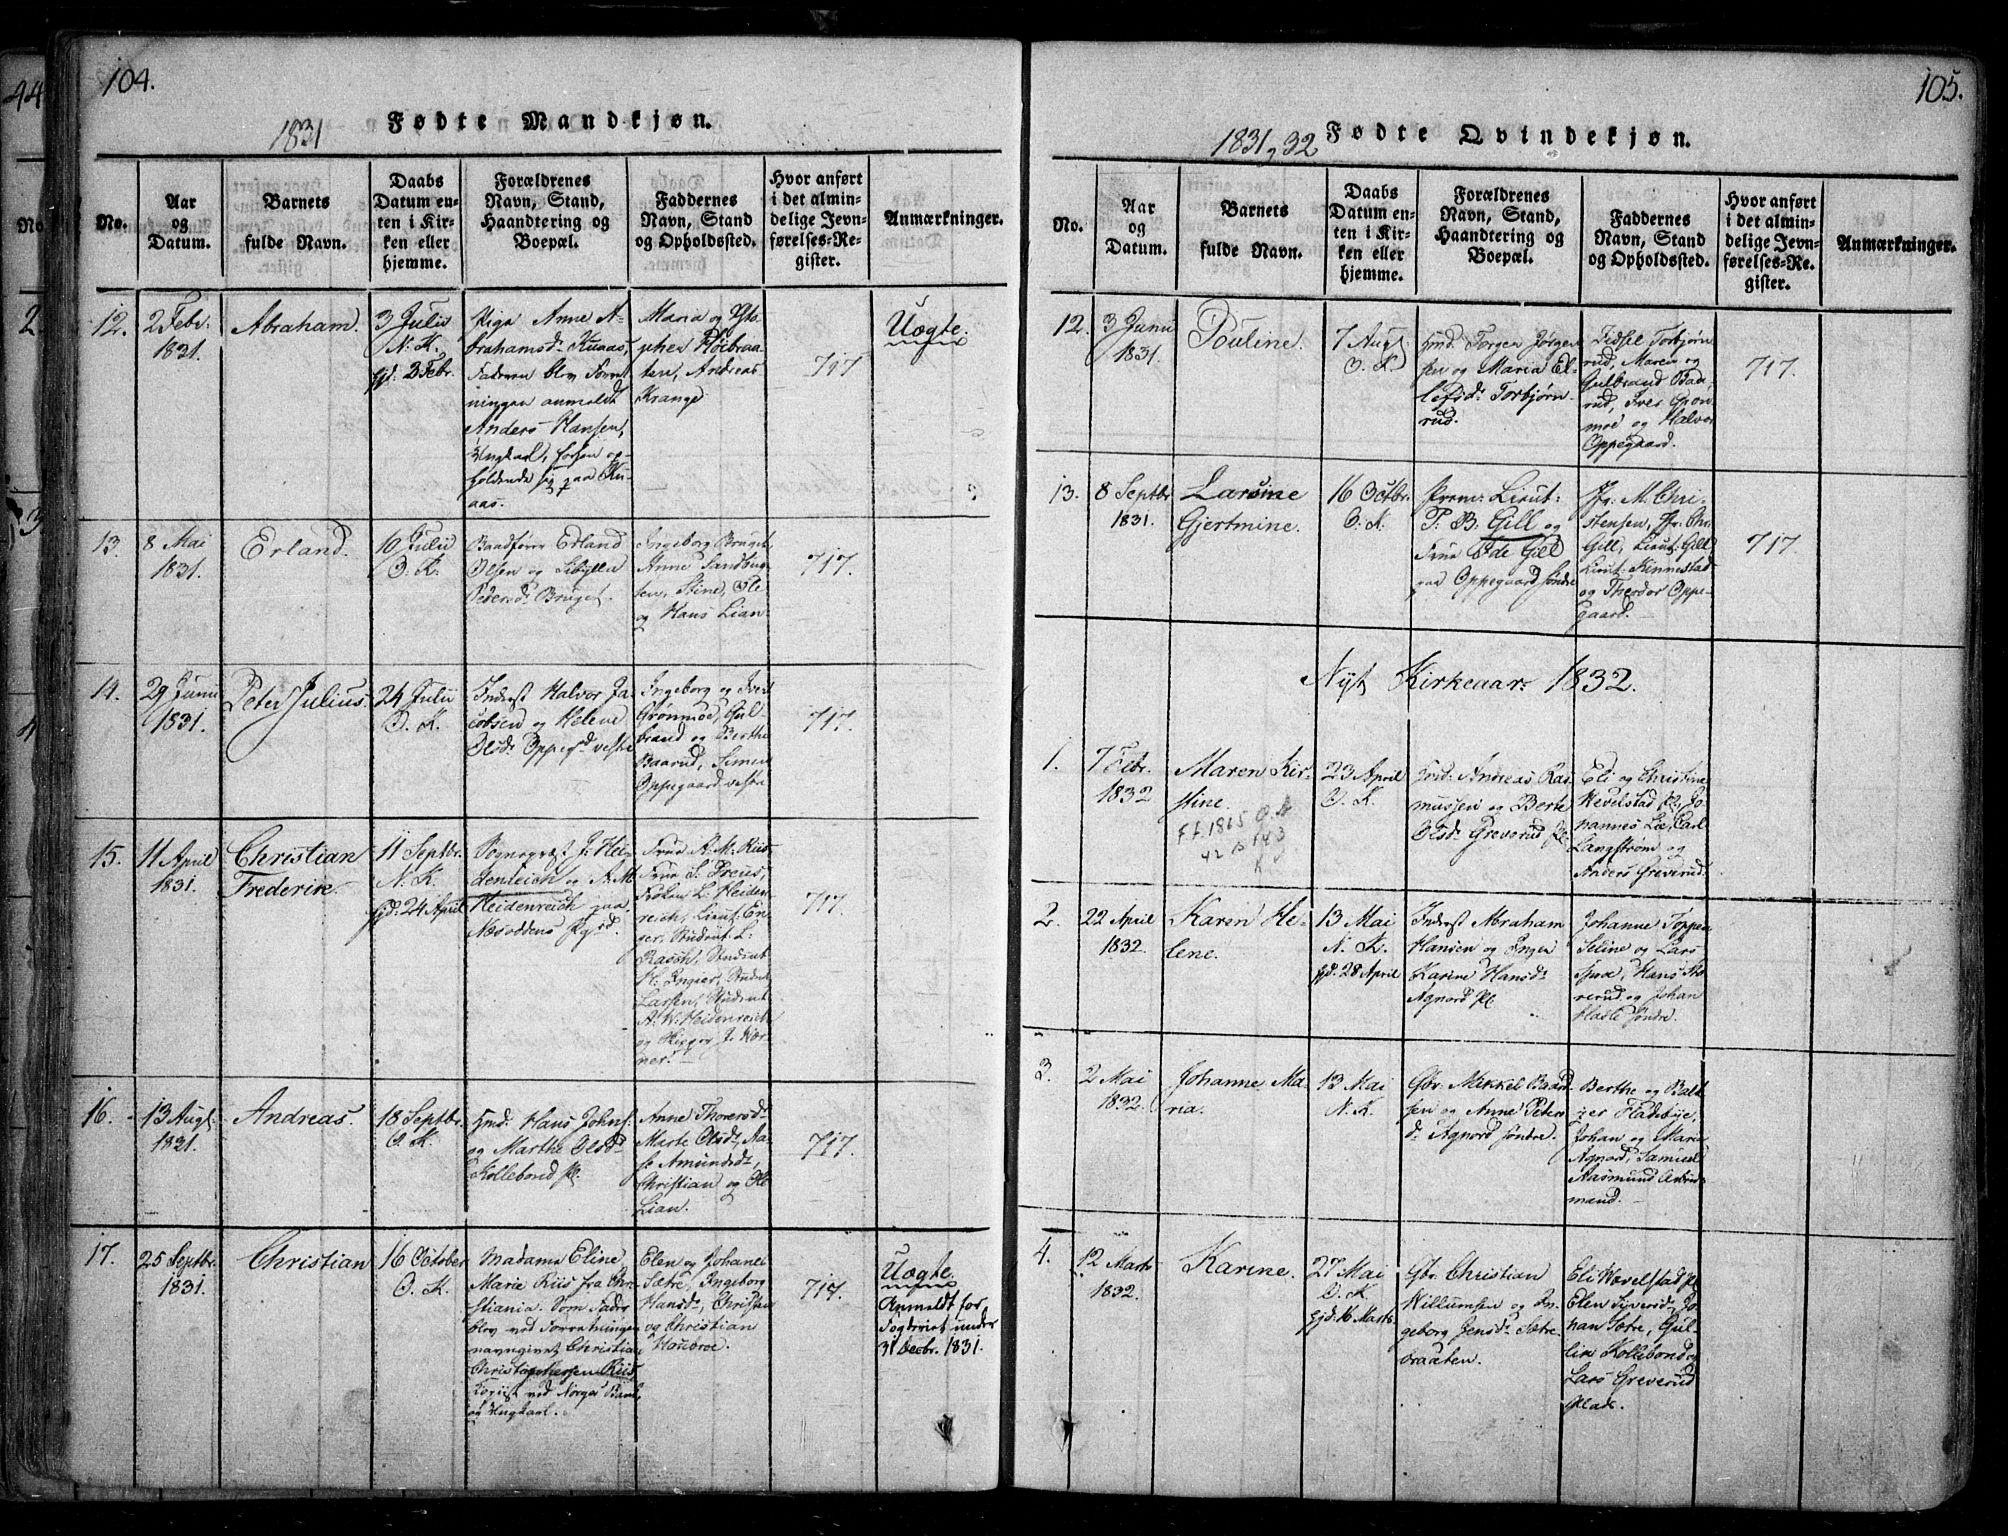 104.
1831
Fødte Mandkjøn.
No.
Aar
og
Datum.
Barnets
fulde Navn.
Daabs
Datum en-
ten i Kir-
ken eller
hjemme.
Forældrenes
Navn, Stand,
Haandtering og
Boepæl.
Faddernes
Navn, Stand
og Opholdssted.
Hvor anført
i det almin-
delige Jevn-
førelses-Re-
gister.
Anmærkninger.
12.
2 Febr.
1831.
Abraham.
3 Julii
N. K.
hjd: 3 Febr.
Pige Anne A-
brahamsd: Kuaas,
Faderen blev
anmeldt
Anders Hansen,
Ungkarl,
sig paa Ku-
aas.
Maria og
Høibraa-
ten, Andreas
Krange
717
Uægte.
13.
8 Mai
1831.
Erland.
10 Julii
O. K.
Erland
Olsen og
Pedersd: Bruget.
Ingeborg Bruget,
Anne Sandbug-
ten, Stine, Ole
og Hans Lian
717.
14.
29 Junii
1831.
Peter Julius.
24 Julii
O. K.
Inderst Halvor Ja-
cobsen og Helene
Olsd: Oppegd vestre
Ingeborg og Iver
Grønmoe, Gul-
brand og Berthe
Baarud, Simen
Oppegaard vestre
717.
15.
11 April
1831.
Christian
Frederik.
11 Septbr.
N. K.
hjd: 24 April
Sognepræst J. Hei-
denreich og A. M.
Heidenreich paa
Næsoddens Pgrd.
Frue A. M. Riis
Frue S. Preus,
Frøken L. Heiden-
reich, Lieut: En-
ger, Student L.
Rasch, Student
H. Ingier, Student
Larsen, Student
A. W. Heidenreich
og J. Wær-
ner.
717.
16.
13 Augt.
1831.
Andreas.
18 Septbr.
O. K.
Hmd. Hans Johns.
og Marthe Olsd:
Kollebond pl.
Anne Thorersd:
Marte Olsd:, Aa-
se Amundsd:,
Christian og Ole
Lian.
717.
17.
25 Septbr.
1831.
Christian
16 October
O. K.
Madame Eline
Marie Riis fra Chri-
stiania. Som Fader
blev ved Forretningen
navngivet Christian
Christophersen Riis
Kopiist ved Norges Bank,
og Ungkarl.
Elen og Johannes
Sætre, Ingeborg
Hansd:, Christen
og Christian
717.
Uægte.
Anmeldt for
Fogderiet under
31 Decbr. 1831.
105.
1831, 32
Fødte Qvindekjøn.
No.
Aar
og
Datum.
Barnets
fulde Navn.
Daabs
Datum en-
ten i Kir-
ken eller
hjemme.
Forældrenes
Navn, Stand,
Haandtering og
Boepæl.
Faddernes
Navn, Stand
og Opholdssted.
Hvor anført
i det almin-
delige Jevn-
førelses-Re-
gister.
Anmærkninger.
12.
3 Junii
1831.
Pouline.
7 Augt.
O. K.
Hmd. Torger Jørgen-
sen og Maria El-
lefsd: Torbjørn-
rud.
Sidsel Torbjørn-
rud, Maren og
Gulbrand Baa-
rud, Iver Grøn-
moe og Halvor
Oppegaard.
717.
13.
8 Septbr.
1831.
Larsine
Gjertmine.
16 Octbr.
O. K.
Prem: Lieut:
P. B. Gill og
Frue Ode Gill
paa Oppegaard søndre
Jfr. M. Chri-
stensen, Jfr. Chr.
Gill, Lieut: Gill,
Lieut: Kinnestad
og Theodor Oppe-
gaard.
717.
Nyt Kirkeaar 1832.
1.
7 Febr.
1832
Maren Kir-
stine.
F.f. 1865
42 B 143
23 April
O. K.
Andreas Ras-
mussen og Berte
Olsd: Greverud pl.
Eli og Christine
Hevelstad pl., Jo-
hannes Lie, Carl
Langstrøm og
Anders Greverud.
2.
22 April
1832.
Karen He-
lene.
13 Mai
N. K.
hjd: 28 April
Inderst Abraham
Hansen og Inger
Karine Hansd:
Agnord pl.
Johanne Toppen
Seline og Lars
Sproe, Hans
og Johan
Hasle søndre.
3.
2 Mai
1832.
Johanne Ma-
ria.
13 Mai
N. K.
Gbr. Mikkel Baard-
sen og Anne Peters-
d: Agnord søndre.
Berthe og Balt-
zer Fladebye,
Johan og Maria
Agnord, Samuel
Aasmund
4.
12 Marts
1832.
Karine.
27 Mai
O. K.
hjd: 16 Marts.
Gbr. Christian
Willumsen og In-
geborg Jensd: Sætre-
braaten.
Eli Wevelstad pl.
Elen Siversd:, Jo-
han Sætre, Gul-
lik Kollebond og
Lars Greverud
plads.